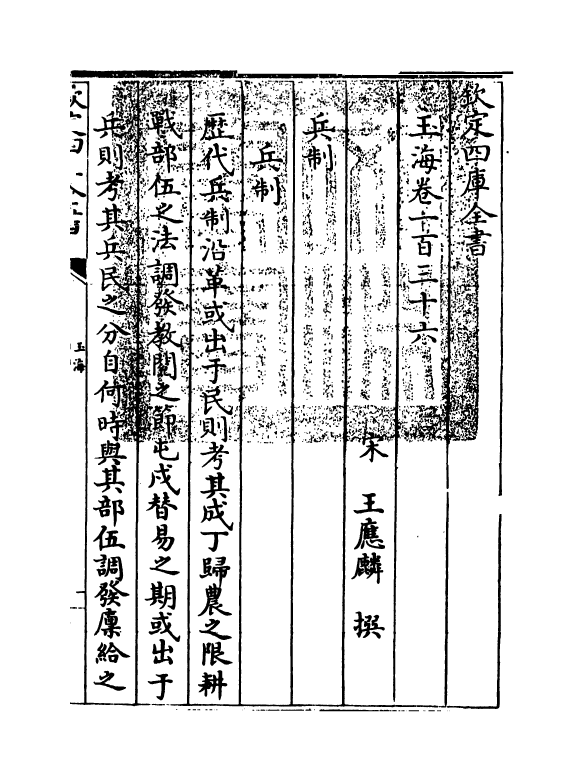 欽定四庫全書
玉海卷一百三十六
宋 王應麟 撰
兵制
兵制
歴代兵制沿革或出于民則考其成丁歸農之限耕
戰部伍之法調發教閱之節屯戍替易之期或出于
兵則考其兵民之分自何時與其部伍調發廩給之
玉海